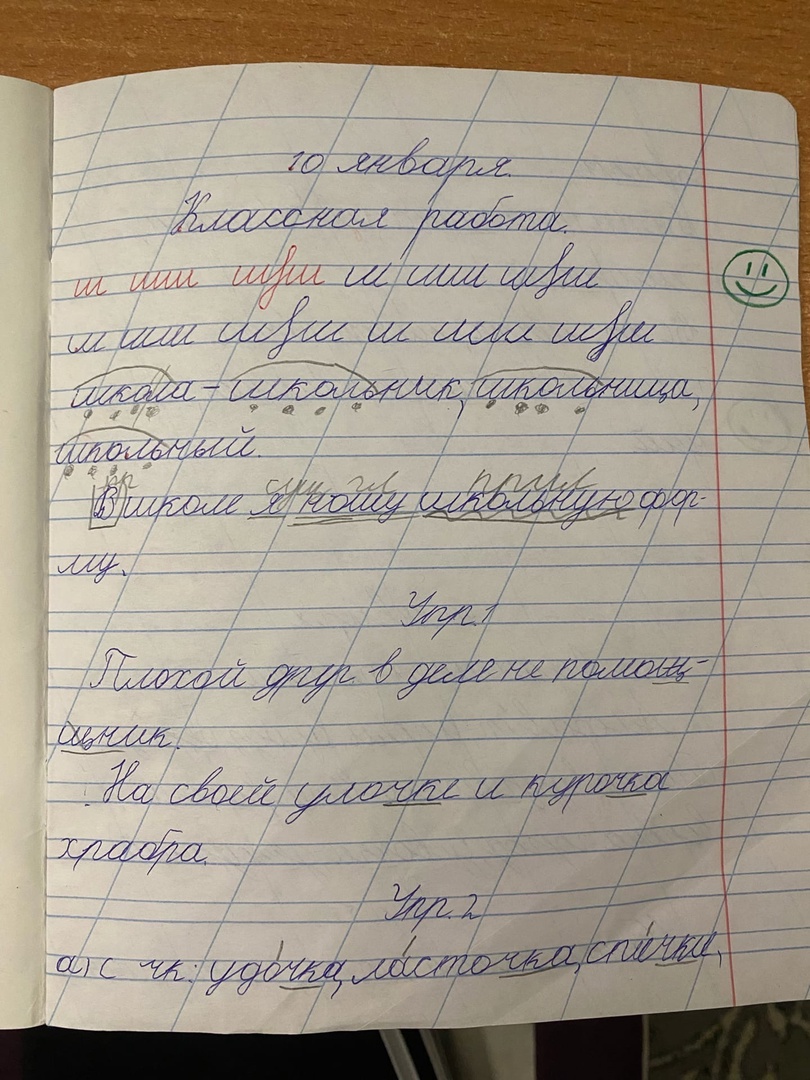 10 января.
Классная работа.
ш шш шзш ш шш шзш
ш шш шзш ш шш шзш
школа – школьник, школьница,
школьный.
пр сущ гл прил
В школе я ношу школьную фор-
му.
Упр. 1
Плохой друг в деле не помощ-
щник.
На своей улочке и курочка
храбра.
Упр. 2
а) с чк: удочка, ласточка, спички,